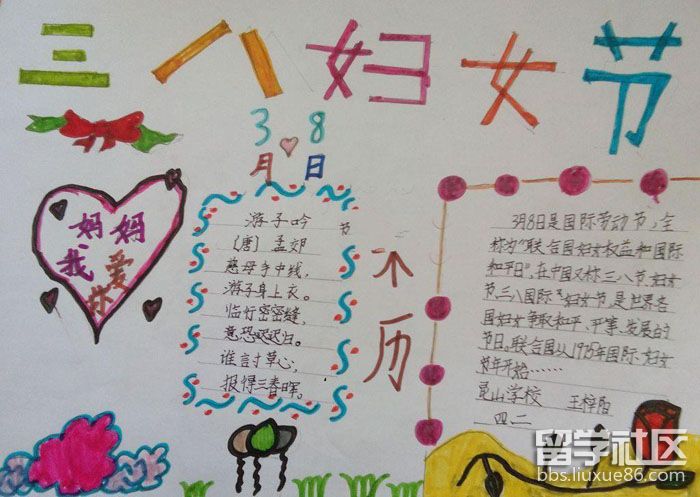 三八妇女节
3 8
月 日
妈妈
我爱
你
游子吟
(唐)孟郊
慈母手中线，
游子身上衣。
临行密密缝，
意恐迟迟归。
谁言寸草心，
报得三春晖。
节
不
历
3月8日是国际劳动节，全
称为"联合国妇女权益和国际
和平日"。在中国又称三八节、妇女
节、三八国际妇女节，是世界各
国妇女争取和平、平等、发展的
节日。联合国从1975年国际妇女
节年开始……
昆山学校 王梓阳
四二
留学社区
bbs.liuxue86.com